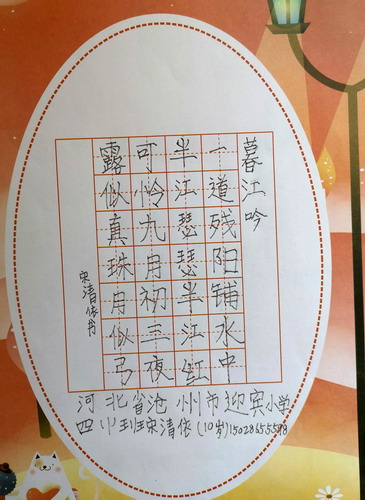 暮江吟
一道残阳铺水中
半江瑟瑟半江红
可怜九月初三夜
露似真珠月似弓
宋清依书
河北省沧州市迎宾小学
四(1)班宋清依(10岁)